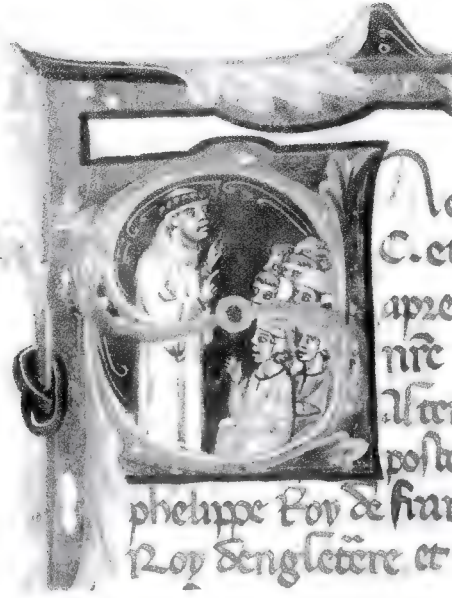 C. et
apre
nr̄e
poste
phelippe Roy de fran
Roy dengleťere et